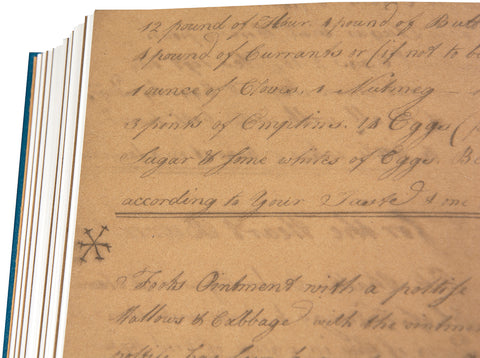 12 pound of flour. 4 pound of Butt
4 pound of Currants or (if not to be
1 ounce of Cloves. 1 Nutmeg —
3 pints of Emptins. 14 Eggs (
Sugar & some whites of Eggs. B
according to Your Taste & one
Ointment with a poltise
Mallows & Cabbage with the ointm